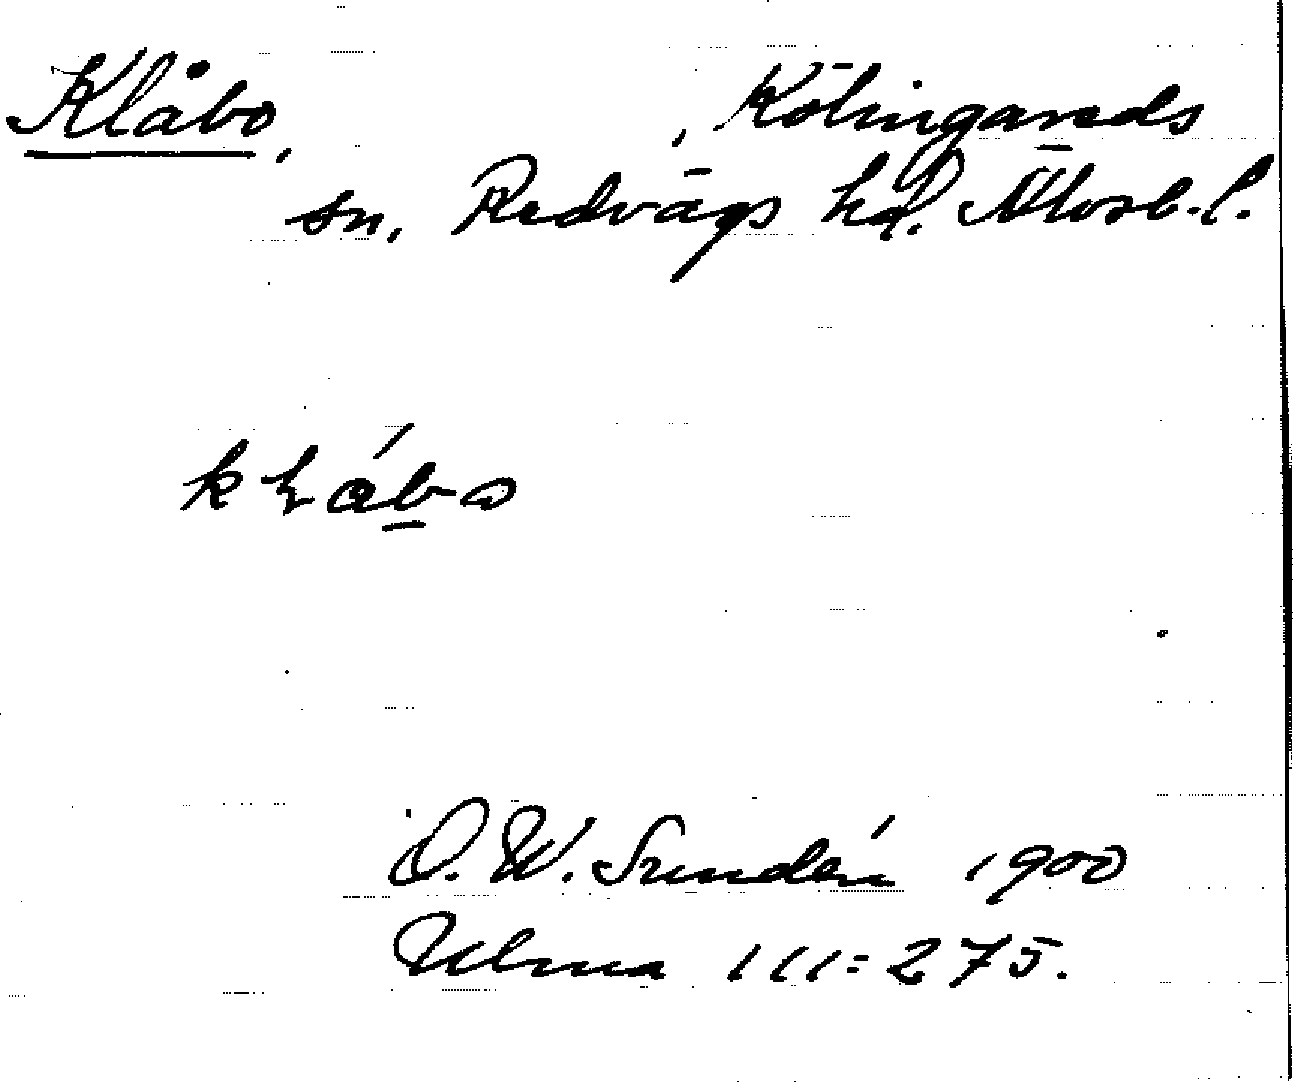 Klåbo, , Kölingareds
sn. Redvägs hd. Älvsb. l.
O. W. Sundén 1900
Ulma 111:275.